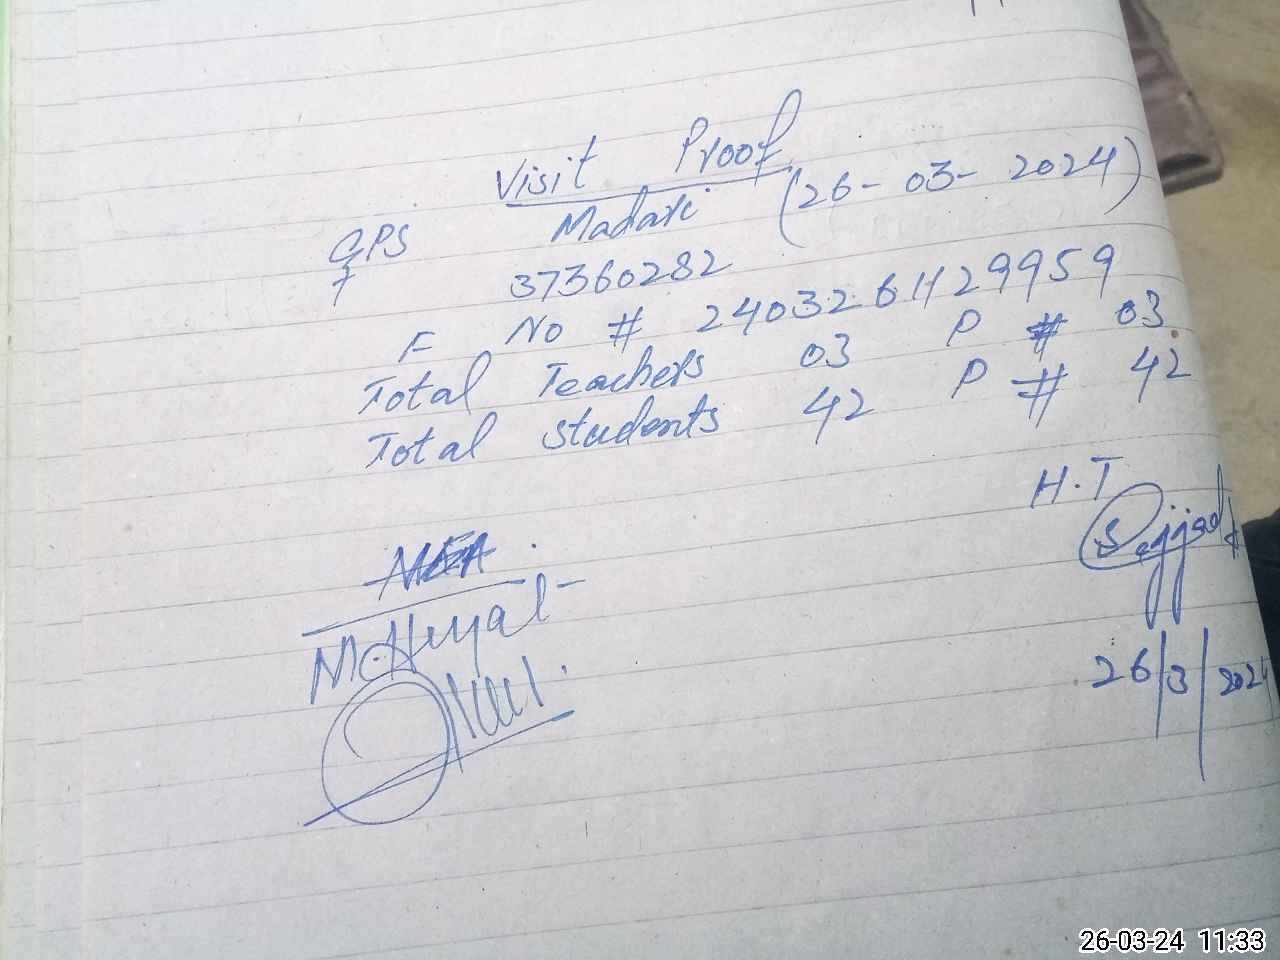 Visit Proof
GPS Madari (26-03-2024)
37360282
F No # 2403261129959
Total Teachers 03 P # 03
Total students 42 P # 42
H.T
Sajjad
MEA
26/3/2024
26-03-24 11:33